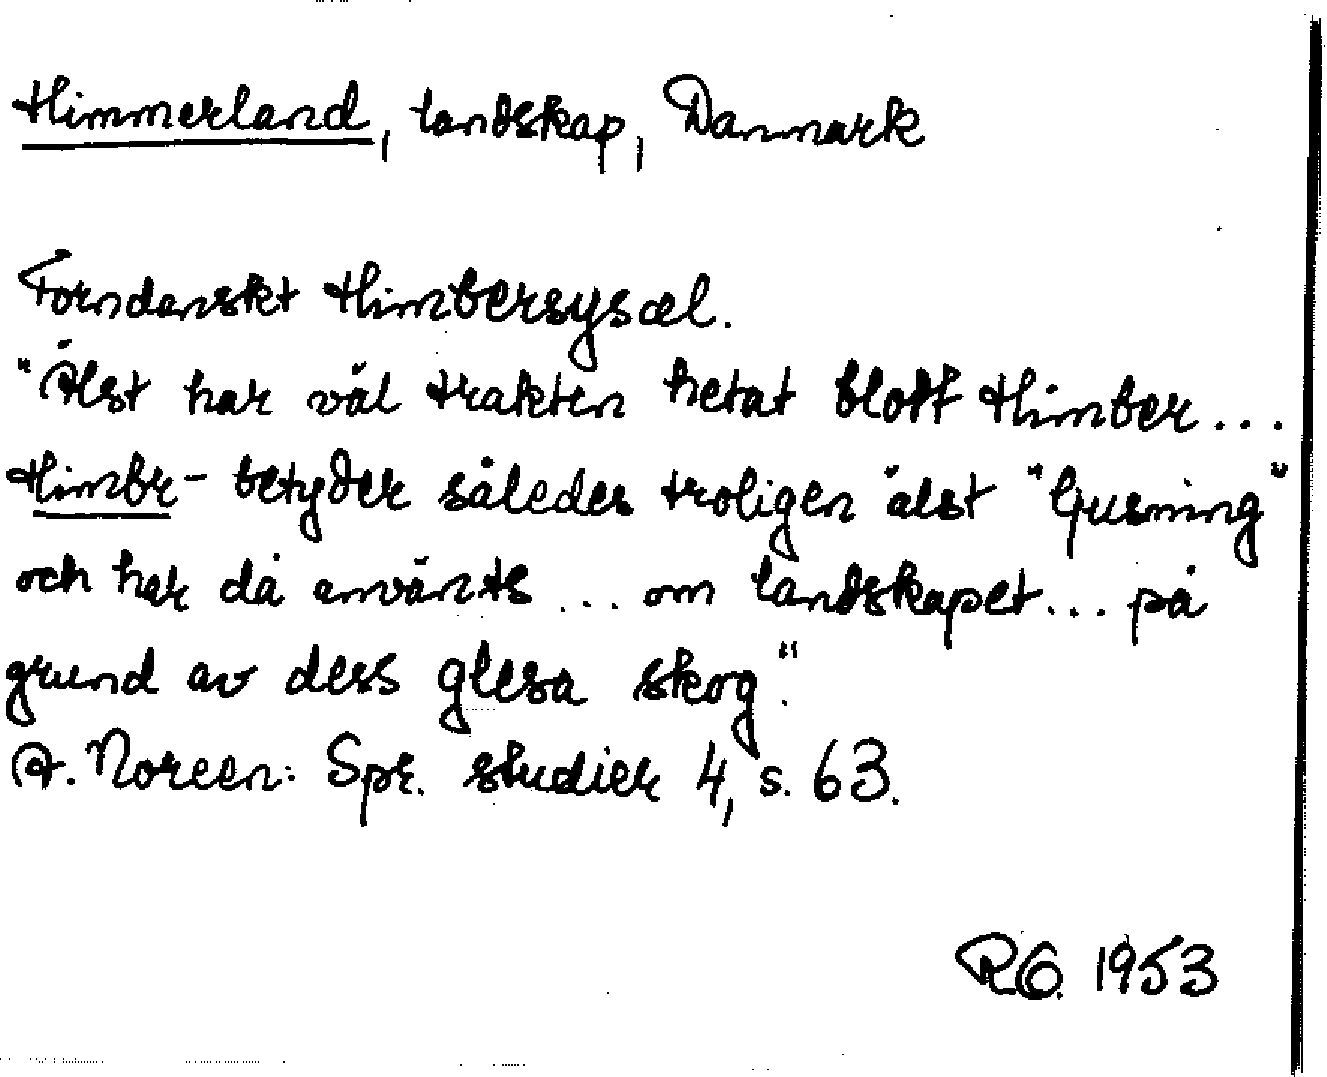 Himmerland, landskap, Danmark
Forndanskt Himbersysæl.
"Älst har väl trakten hetat blott Himber...
Himbr- betyder således troligen älst "ljusning"
och har då använts ... om landskapet... på
grund av dess glesa skog".
A. Noreen: Spr. studier 4, s. 63.
RG. 1953